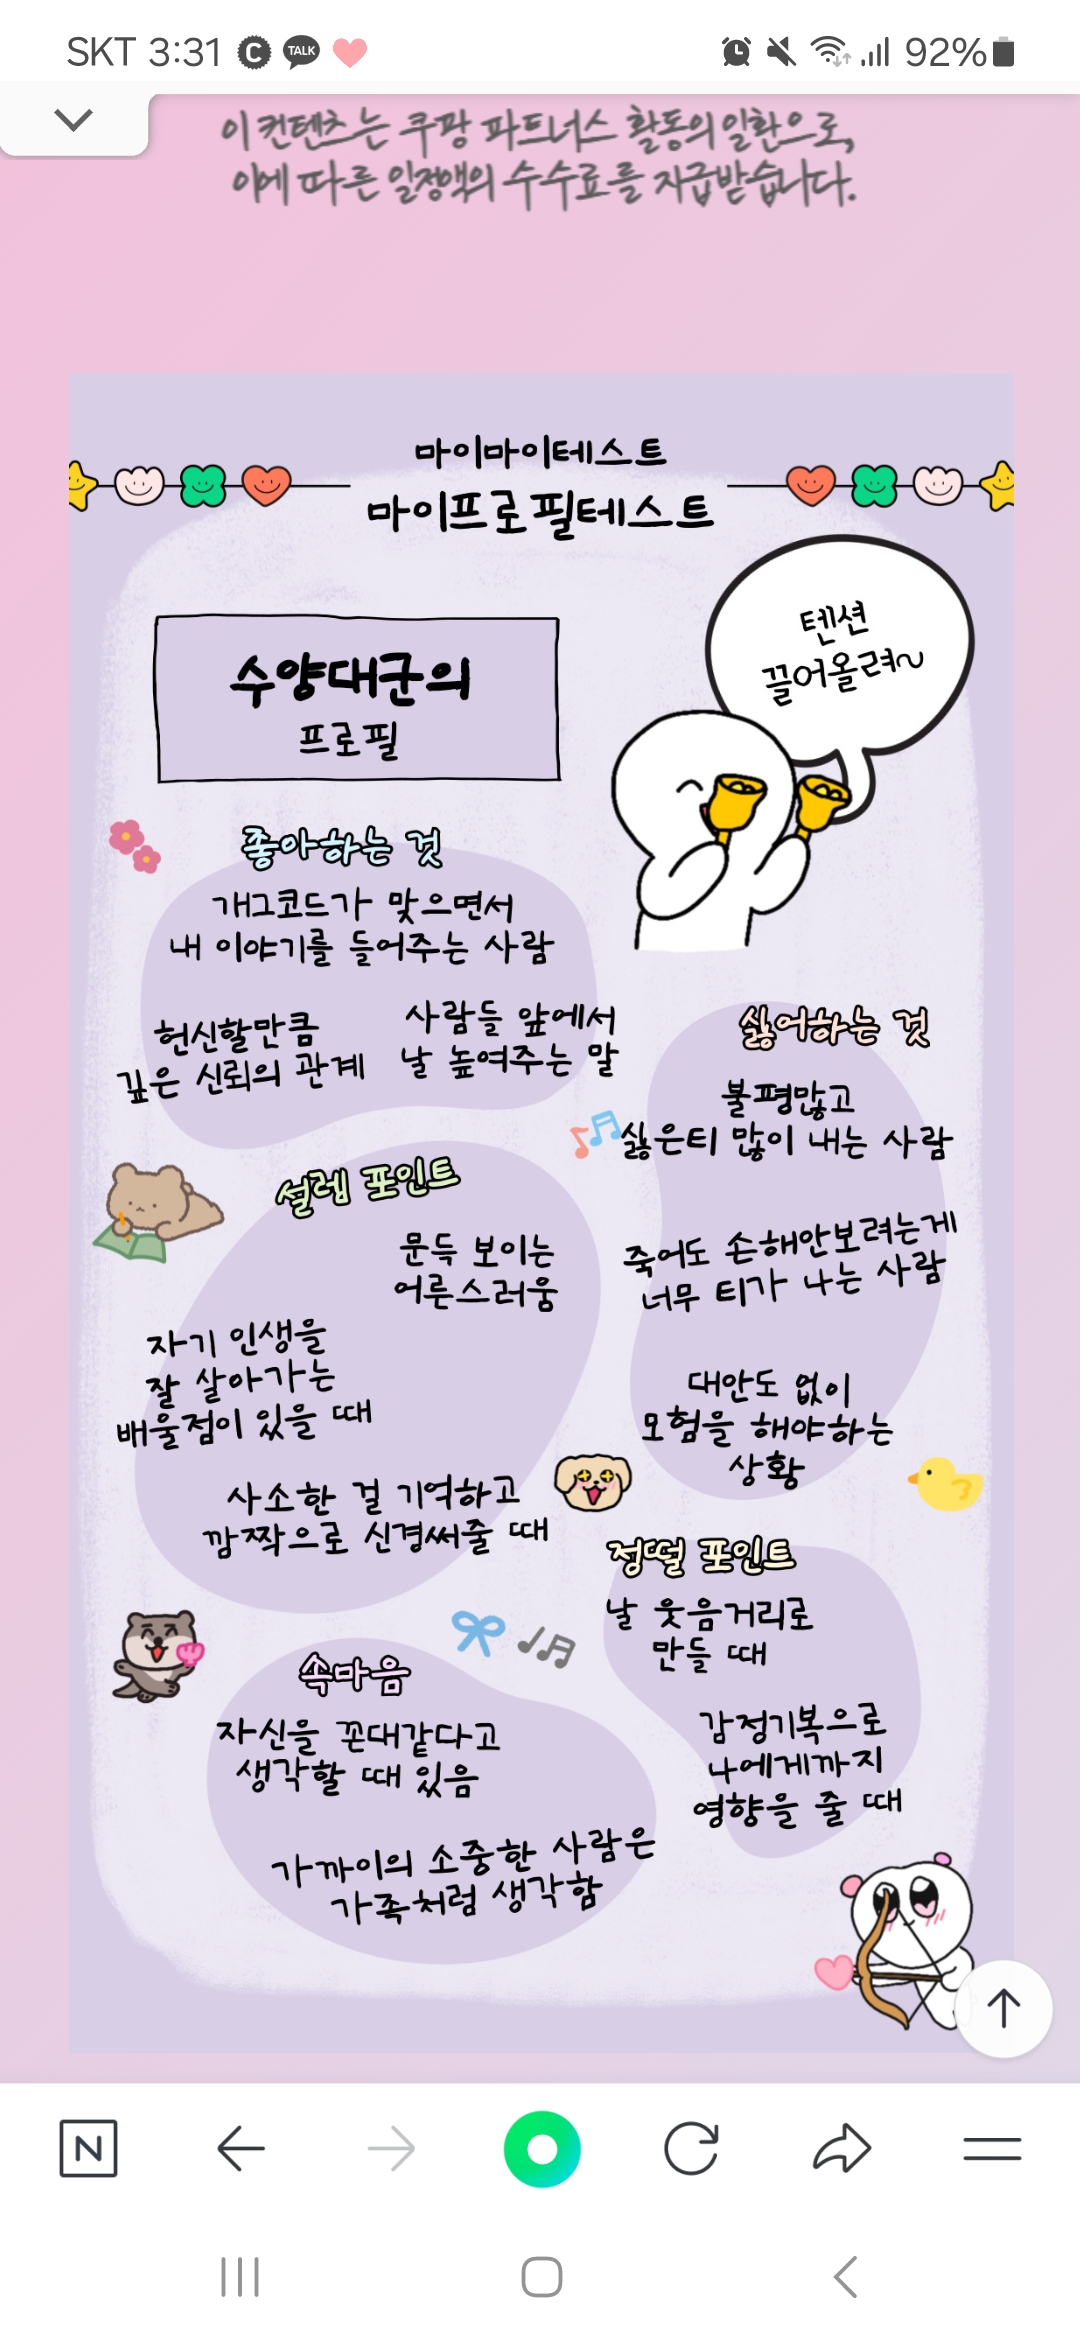 SKT 3:31
TALK
92%
이 컨텐츠는 쿠팡 파트너스 활동의 일환으로,
이에 따른 일정액의 수수료를 지급받습니다.
마이마이테스트
마이프로필테스트
텐션
끌어올려~
수양대군의
프로필
좋아하는 것
개그코드가 맞으면서
내 이야기를 들어주는 사람
헌신할만큼
깊은 신뢰의 관계
사람들 앞에서
날 높여주는 말
싫어하는 것
불평많고
싫은티 많이 내는 사람
죽어도 손해안보려는게
너무 티가 나는 사람
대안도 없이
모험을 해야하는
상황
설렘 포인트
문득 보이는
어른스러움
자기 인생을
잘 살아가는
배울점이 있을 때
사소한 걸 기억하고
깜짝으로 신경써줄 때
정떨 포인트
날 웃음거리로
만들 때
감정기복으로
나에게까지
영향을 줄 때
속마음
자신을 꼰대같다고
생각할 때 있음
가까이의 소중한 사람은
가족처럼 생각함
N